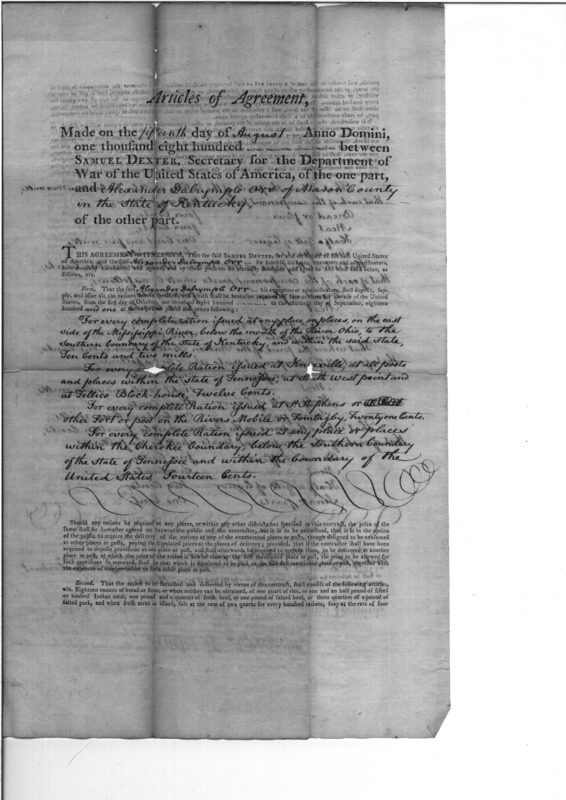 Articles of Agreement,
Made on the fifteenth day of August Anno Domini,
one thouſand eight hundred between
SAMUEL DEXTER, Secretary for the Department of
War of the United States of America, of the one part,
and Alexander Dalrymple Orr of Mason County
in the State of Kentucky,
of the other part.
THIS AGREEMENT WITNESSETH, That the ſaid SAMUEL DEXTER, for and on behalf of the ſaid United States
of America, and the ſaid Alexander Dalrymple Orr for himſelf, his heirs, executors and adminiſtrators,
have mutually covenanted and agreed, and by theſe preſents do mutually covenant and agree to and with each other, as
follows, viz.
Firſt. That the ſaid Alexander Dalrymple Orr his executors or adminiſtrators, ſhall depoſit, ſup-
ply, and iſſue all the rations herein ſpecified, and which ſhall be hereafter required of him or them for the uſe of the United
States, from the firſt day of October, one thouſand eight hundred to the thirtieth day of September, eighteen
hundred and one at the reſpective places and prices following:
For every complete ration iſsued at any place or places, on the east
side of the Miſsiſsippi River, below the mouth of the River Ohio, to the
Southern boundary of the State of Kentucky, and within the said State,
Ten Cents and two mills.
For every complete Ration iſsued at Knoxville, at all posts
and places within the State of Tenneſsee, at South West point and
at Tellico Block house, Twelve Cents.
For every complete Ration iſsued at St Stephens or
other Fort or post on the Rivers Mobile or Tombigby, Twenty one Cents.
For every complete Ration iſsued at any place or places
within the Cherokee boundary, below the Southern boundary
of the State of Tenneſsee and within the boundary of the
United States, Fourteen Cents.
Should any rations be required at any places, or within any other diſtricts not ſpecified in this contract, the price of the
ſame ſhall be hereafter agreed on betwixt the public and the contractor, but it is to be underſtood, that it is in the option
of the public to require the delivery of the rations at any of the enumerated places or poſts, though deſigned to be conſumed
at other places or poſts, paying the ſtipulated price at the places of delivery; provided, that if the contractor ſhall have been
required to depoſit proviſions at one place or poſt, and ſhall afterwards be required to remove them, to be delivered at another
place or poſt, at which the price of the ration is lower than at the firſt mentioned place or poſt, the price to be allowed for
ſuch proviſions ſo removed, ſhall be that which is ſtipulated to be paid at the ſaid firſt mentioned place or poſt, together with
the expences of tranſportation to ſuch other place or poſt.
Second. That the ration to be furniſhed and delivered by virtue of this contract, ſhall conſiſt of the following articles,
viz. Eighteen ounces of bread or flour, or when neither can be obtained, of one quart of rice, or one and an half pound of ſifted
or boulted Indian meal, one pound and a quarter of freſh beef, or one pound of ſalted beef, or three quarters of a pound of
ſalted pork, and when freſh meat is iſſued, ſalt at the rate of two quarts for every hundred rations, ſoap at the rate of four